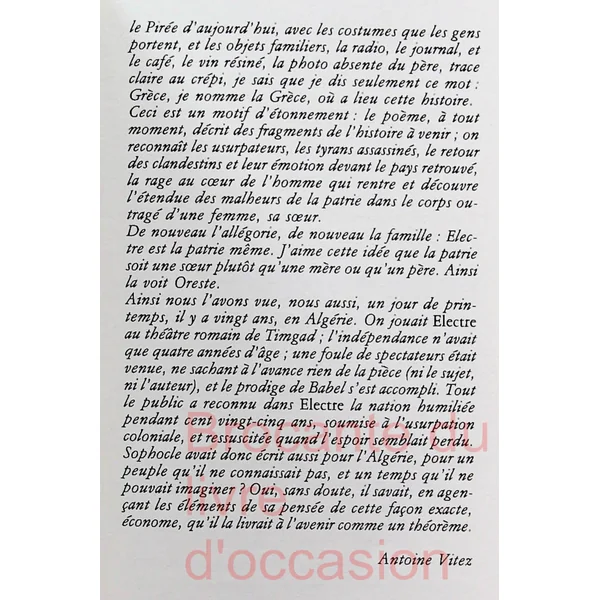 le Pirée d'aujourd'hui, avec les costumes que les gens
portent, et les objets familiers, la radio, le journal, et
le café, le vin résiné, la photo absente du père, trace
claire au crépi, je sais que je dis seulement ce mot :
Grèce, je nomme la Grèce, où a lieu cette histoire.
Ceci est un motif d'étonnement : le poème, à tout
moment, décrit des fragments de l'histoire à venir ; on
reconnaît les usurpateurs, les tyrans assassinés, le retour
des clandestins et leur émotion devant le pays retrouvé,
la rage au cœur de l'homme qui rentre et découvre
l'étendue des malheurs de la patrie dans le corps ou-
tragé d'une femme, sa sœur.
De nouveau l'allégorie, de nouveau la famille : Elec-
tre est la patrie même. J'aime cette idée que la patrie
soit une sœur plutôt qu'une mère ou qu'un père. Ainsi
la voit Oreste.
Ainsi nous l'avons vue, nous aussi, un jour de prin-
temps, il y a vingt ans, en Algérie. On jouait Electre
au théâtre romain de Timgad ; l'indépendance n'avait
que quatre années d'âge ; une foule de spectateurs était
venue, ne sachant à l'avance rien de la pièce (ni le sujet,
ni l'auteur), et le prodige de Babel s'est accompli. Tout
le public a reconnu dans Electre la nation humiliée
pendant cent vingt-cinq ans, soumise à l'usurpation
coloniale, et ressuscitée quand l'espoir semblait perdu.
Sophocle avait donc écrit aussi pour l'Algérie, pour un
peuple qu'il ne connaissait pas, et un temps qu'il ne
pouvait imaginer ? Oui, sans doute, il savait, en agen-
çant les éléments de sa pensée de cette façon exacte,
économe, qu'il la livrait à l'avenir comme un théorème.
Antoine Vitez
Brocante du
livre
d'occasion